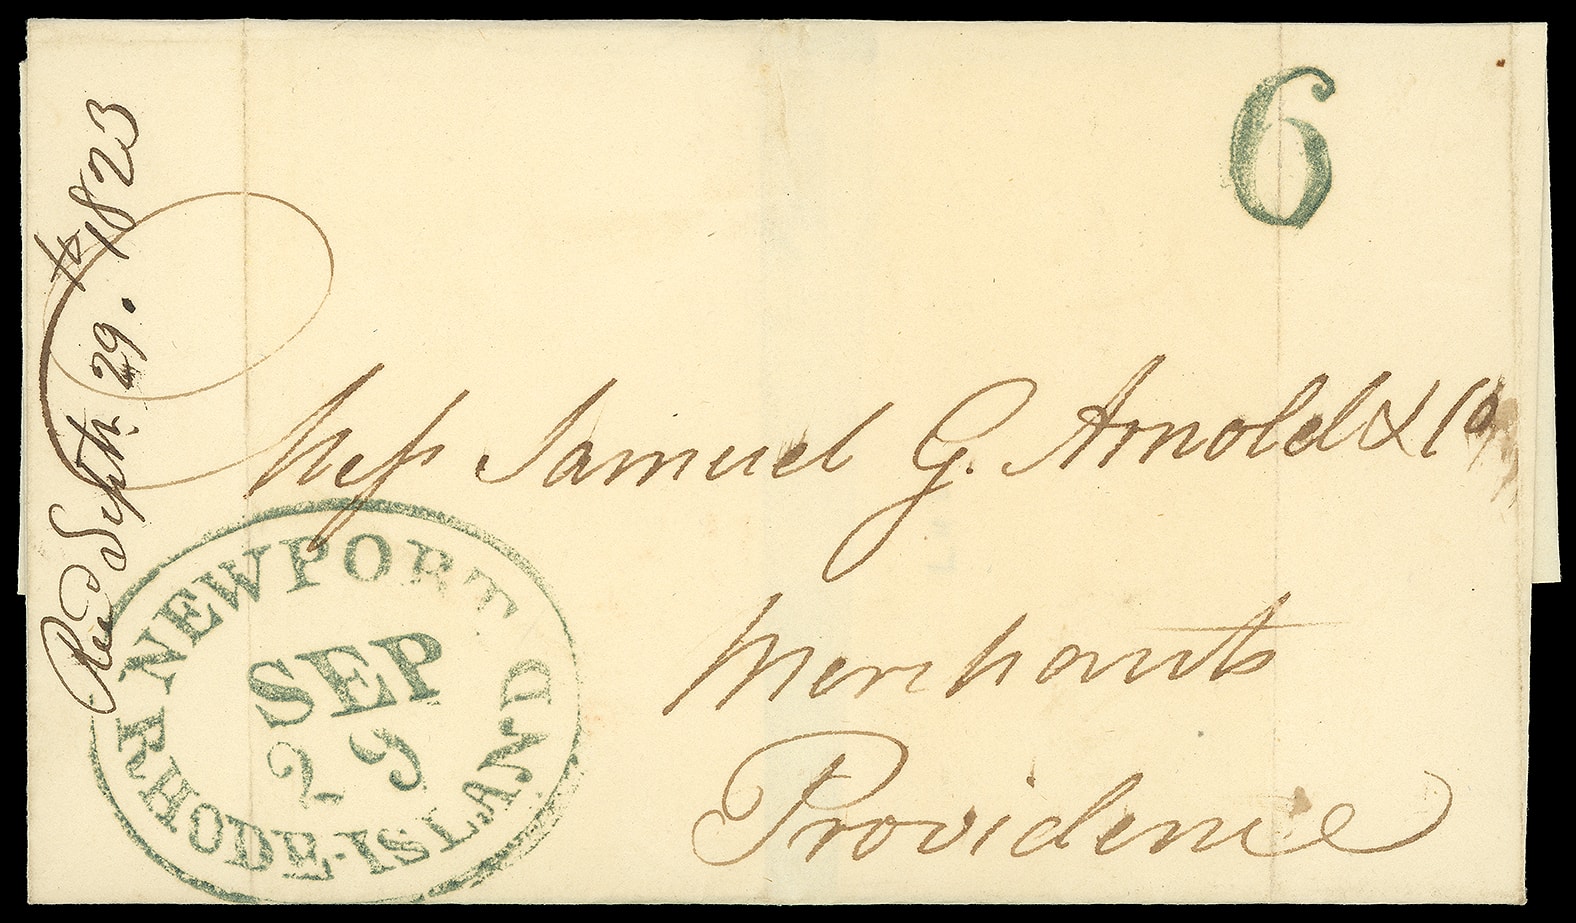 6
Recd Sept. 29.th 1823
Mess Samuel G. Arnold & Co
Merchants
Providence
NEWPORT
SEP
29
RHODE-ISLAND